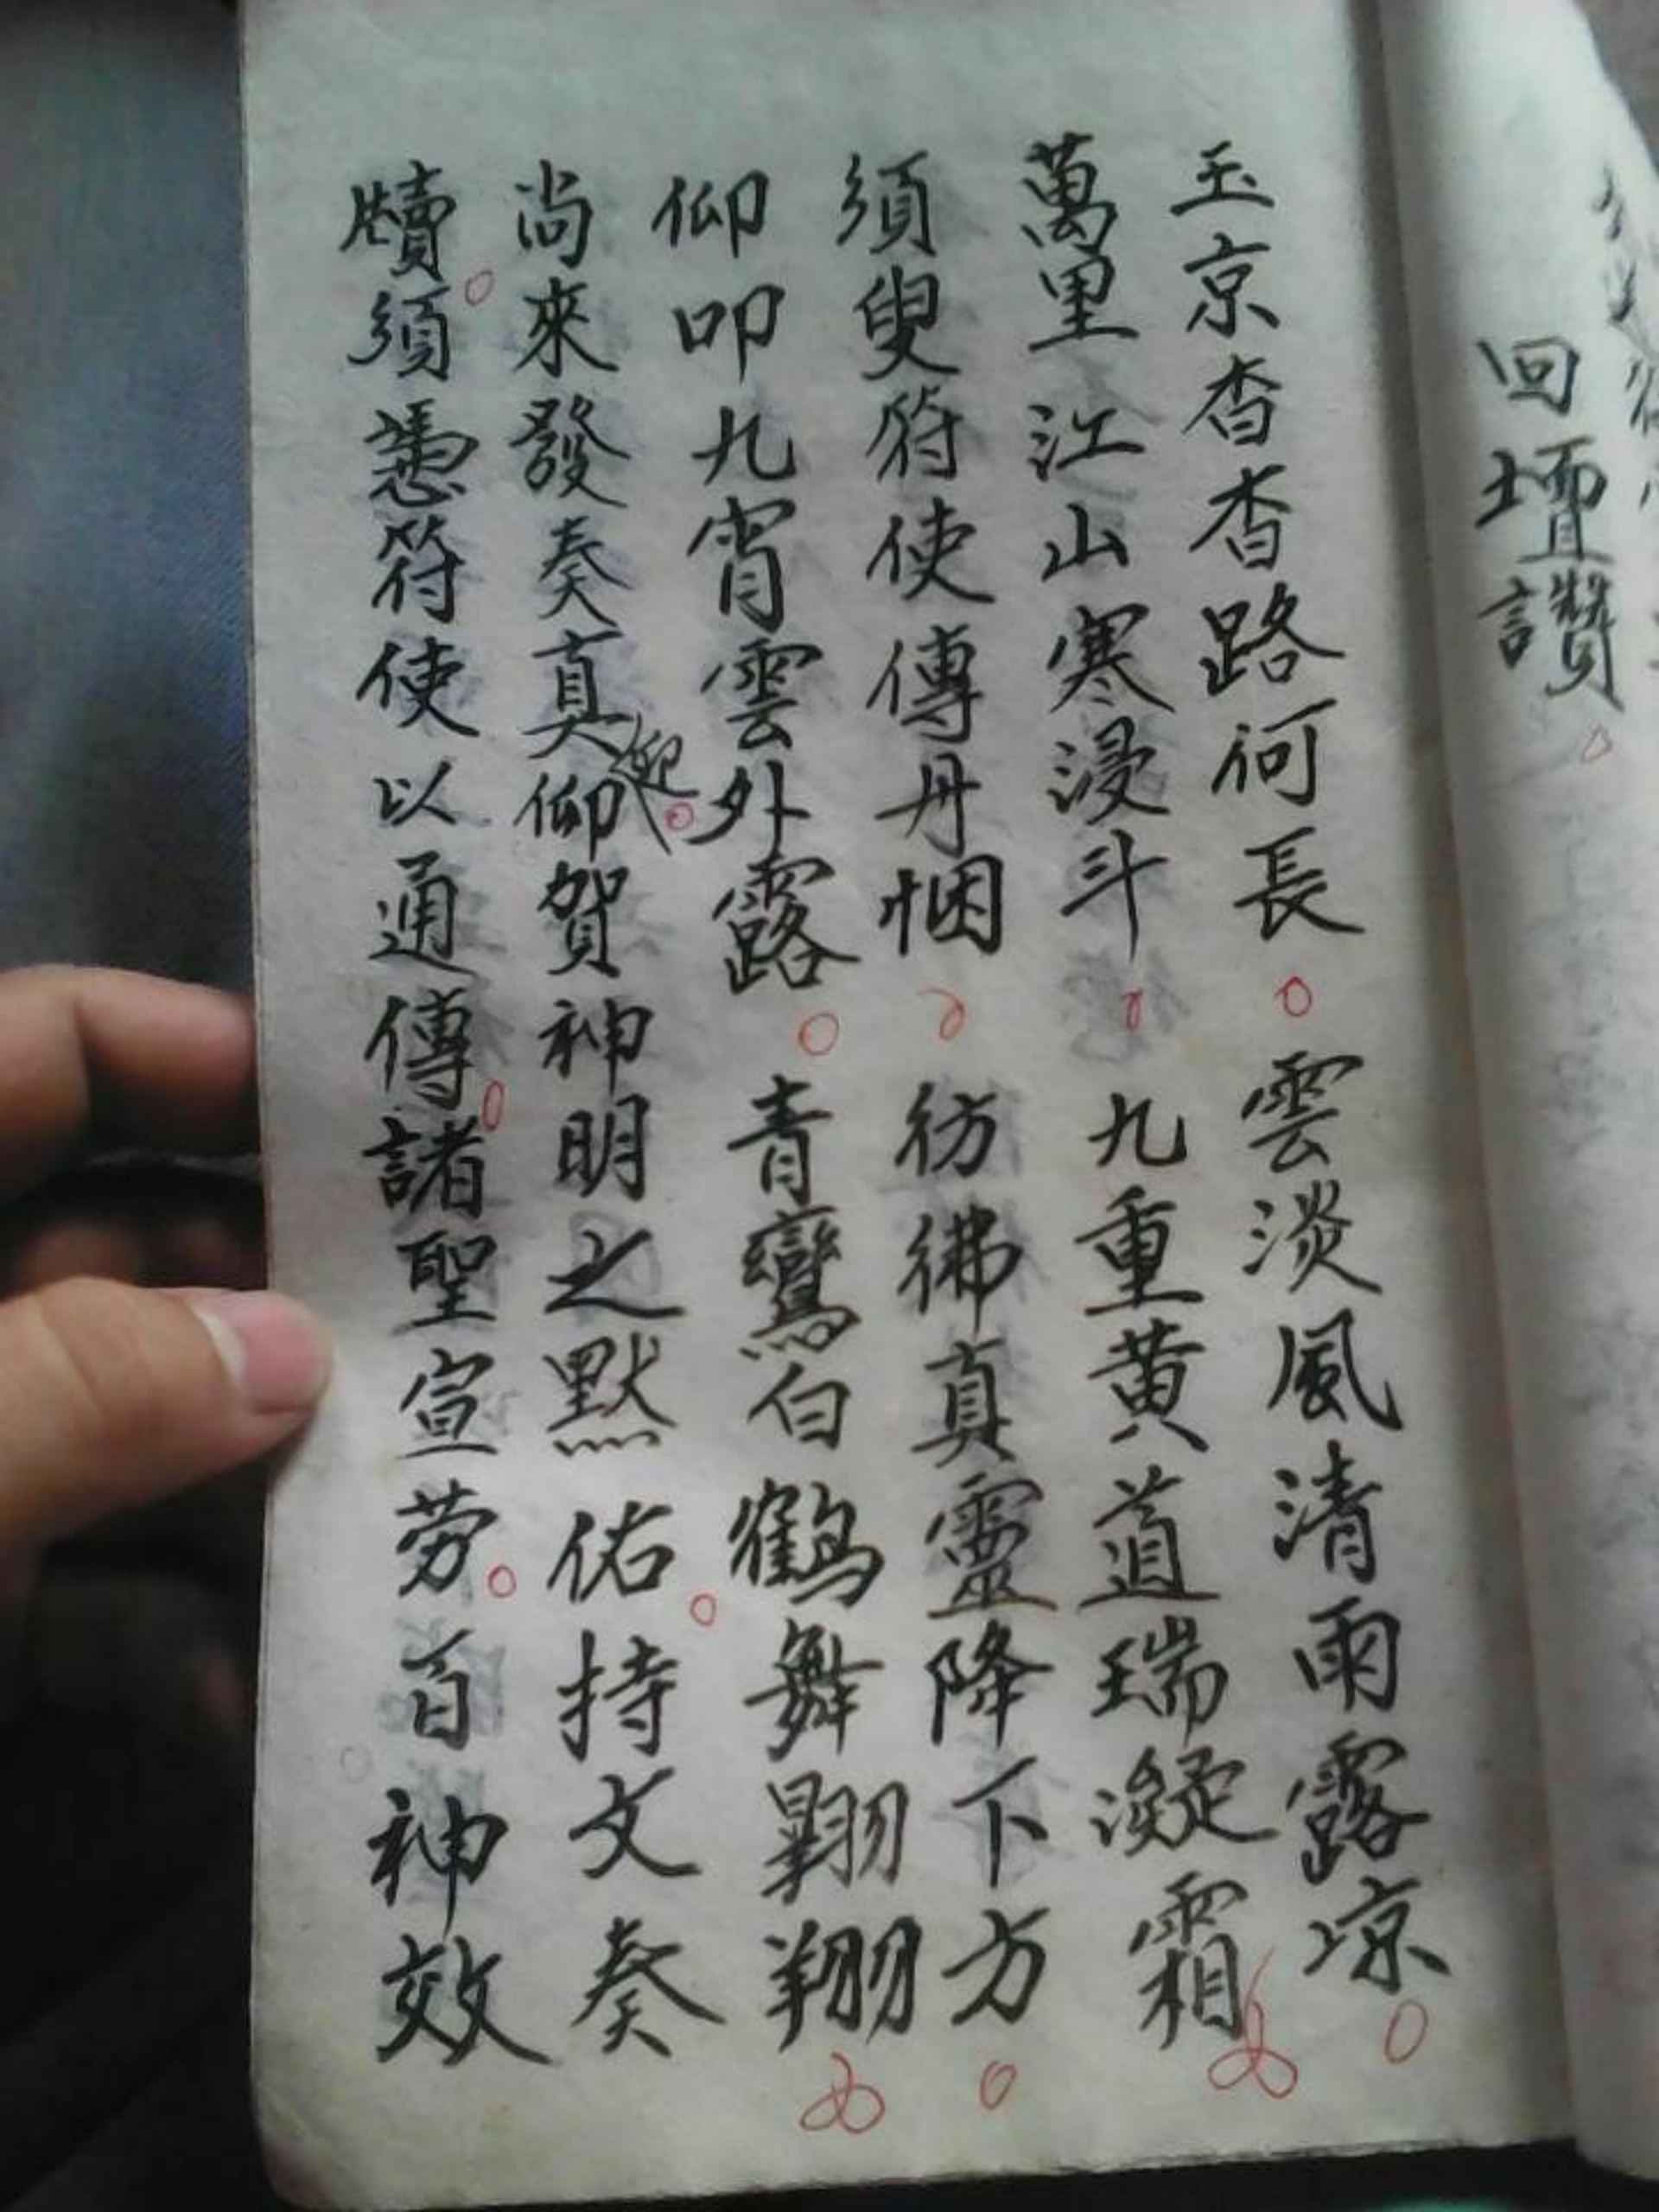 回壇讚
玉京杳杳路何長雲淡風清雨露凉
萬里江山寒浸斗九重黄道瑞凝霜
須臾符使傳丹悃彷彿真靈降下方
仰叩九宵雲外露青鸞白鶴舞翺翔
尚來發奏真仰賀神明之默佑持文奏
牘須憑符使以通傳諸聖宣劳百神效